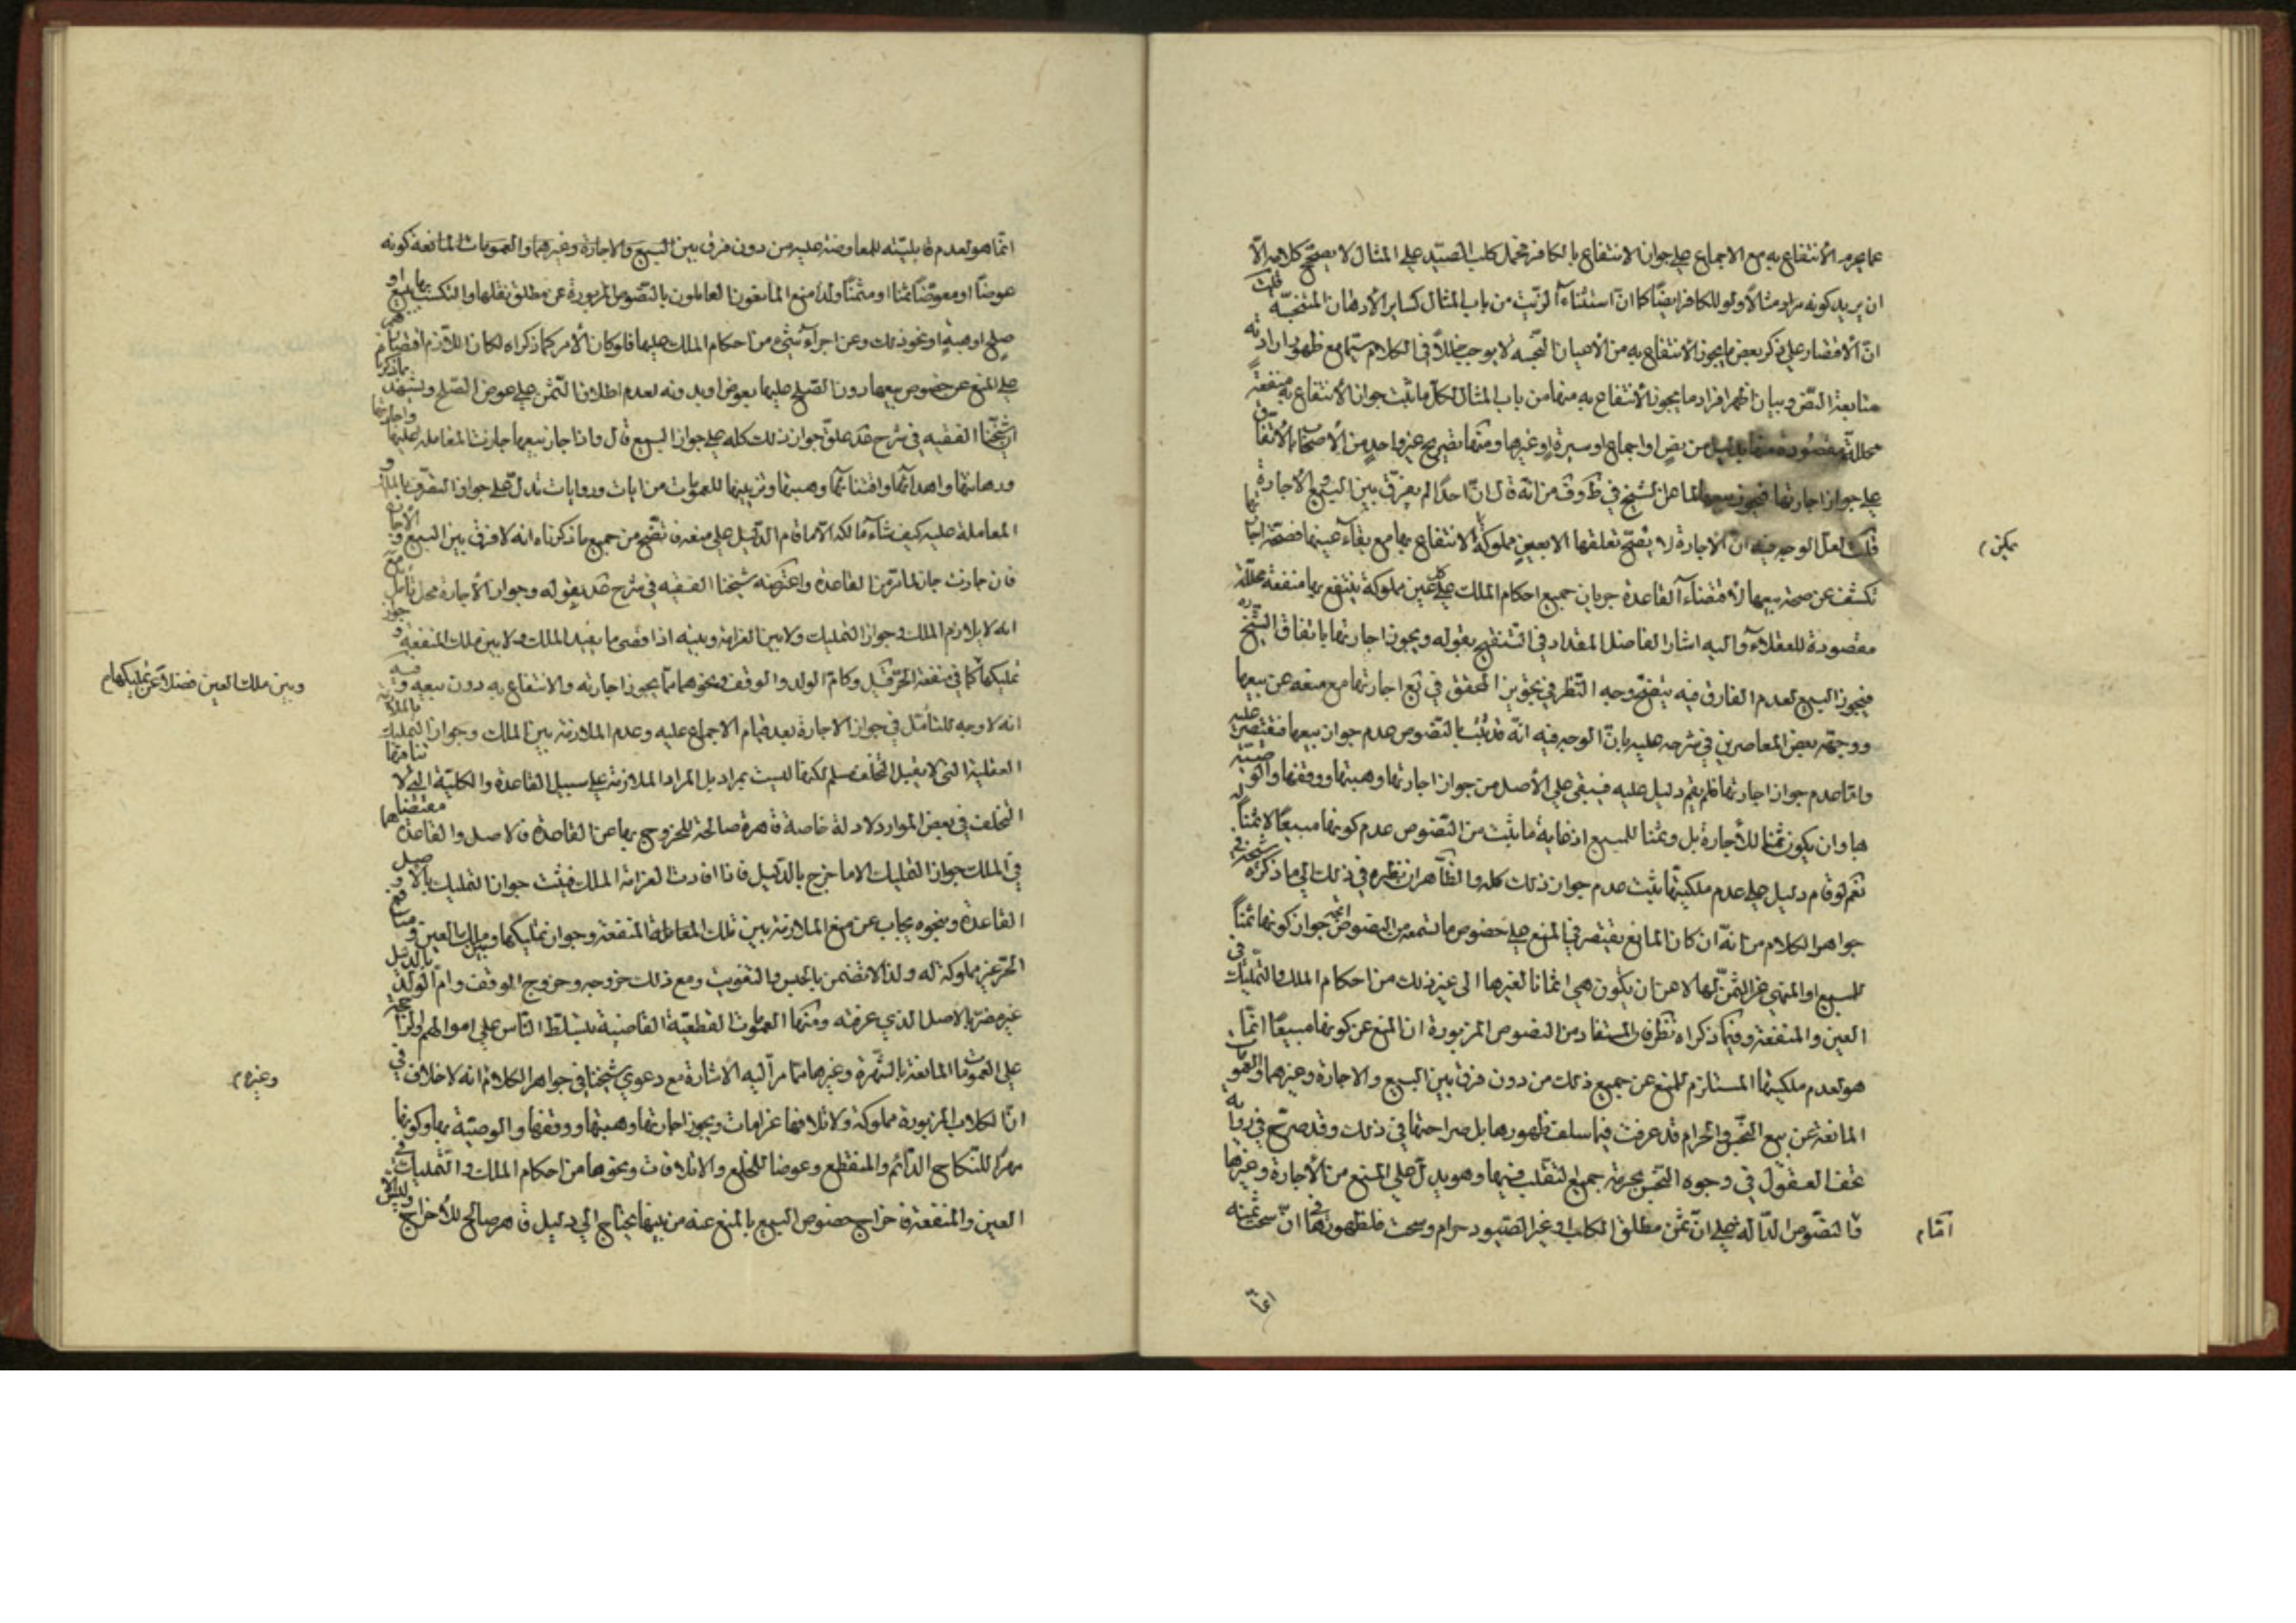 عما يحرم الانتفاع به مع الاجماع على جواز الانتفاع بالكافر فحمل كلب الصيد على المثال لا يصحح كلامه الّا
ان يريد كونه مرادا مثالا ولو للكافر ايضا كما انّ استثناء الزيت من باب المثال كساير الادهان المتنجسة قلت
انّ الاقتصار على ذكر بعض ما يجوز الانتفاع به من الاعيان النجسة لا يوجب خللا في الكلام سيّما مع ظهور ارادته
متابعة النص وبيان اظهر افراد ما يجوز الانتفاع به منها من باب المثال لكل ما يثبت جواز الانتفاع به منفعة
محللة مقصودة من نص او اجماع او سيرة او غيرها ومنها تصريح غير واحد من الاصحاب بالاتفاق
على جواز اجارتها فيجوز بيعها لما عن الشيخ في ظ وف من انه قال انّ احدا لم يفرّق بين البيع والاجارة
قلت لعل الوجه فيه انّ الاجارة لا يصحّ تعلقها الا بعين مملوكة الانتفاع بها مع بقاء عينها فصحّة اجارتها
يمكن م
تكشف عن صحة بيعها لاقتضاء القاعدة جريان جميع احكام الملك على كل عين مملوكة ينتفع بها منفعة محللة
مقصودة للعقلاء واليه اشار الفاضل المقداد في التنقيح بقوله ويجوز اجارتها باتفاق الشيخ ره
فيجوز البيع لعدم الفارق فيه يتضح وجه النظر في تجويز المحقق في يع اجارتها مع منعه عن بيعها
ووجّهه بعض المعاصرين في شرحه عليه بانّ الوجه فيه انّه قد ثبت بالنصوص عدم جواز بيعها فنقتصر عليه
وامّا عدم جواز اجارتها فلم يقم دليل عليه فيبقى على الاصل من جواز اجارتها وهبتها ووقفها والوصية
بها وان يكون ثمنا للاجارة بل وثمنا للمبيع اذ غاية ما يثبت من النصوص عدم كونها مبيعا لا ثمنا
نعم لو قام دليل على عدم ملكيتها يثبت عدم جواز ذلك كله والظاهر ان نظره في ذلك الى ما ذكره شيخنا في
جواهر الكلام من انّه ان كان المانع يقتصر في المنع على خصوص ما سمعه من النصوص اتجه جواز كونها ثمنا
للمبيع او المنهي عن الثمن لها لا عن ان يكون هي اثمانا لغيرها الى غير ذلك من احكام الملك والتمليك في
العين والمنفعة وفيما ذكراه نظر فان المستفاد من النصوص المزبورة ان المنع عن كونها مبيعا انّما
هو لعدم ملكيتها المستلزم للمنع عن جميع ذلك من دون فرق بين البيع والاجارة وغيرهما والعمومات
المانعة عن بيع النجس والحرام قد عرفت فيما سلف ظهورها بل صراحتها في ذلك وقد صرّح في رواية
تحف العقول في وجوه النجس بحرمة جميع التقلب فيها وهو يدل على المنع من الاجارة وغيرها
فالنصوص الدّالة على انّ ثمن مطلق الكلب او غير الصيود حرام وسحت فلظهورها في انّ سحت ثمنه
امّا م
انّما
انّما هو لعدم قابليّته للمعاوضة عليه من دون فرق بين البيع والاجارة وغيرهما والعمومات المانعة كونه
عوضا او معوّضا ثمنا او مثمنا ولذا منع المانعون العاملون بالنصوص المزبورة عن مطلق نقلها والتكسب بها ببيع او
صلح او هبة او نحو ذلك وعن اجراء شيء من احكام الملك عليها فلو كان الامر كما ذكراه لكان اللازم اقتصارهم
على المنع عن خصوص بيعها دون الصلح عليها بعوض او بدونه لعدم اطلاق الثمن على عوض الصلح ويشهد بما ذكرنا
ان شيخنا الفقيه في شرح عد علق جواز ذلك كله على جواز البيع قال واذا جاز بيعها جازت المعاملة عليها واجارتها
ورهانتها واهدائها واقتنائها وهبتها وتربيتها للعمومات من ايات وروايات تدل على جواز التصرف بالملك و
المعاملة عليه كيف شاء مالكه الّا ما قام الدليل على منعه فاتضح من جميع ما ذكرناه انه لا فرق بين البيع والاجارة
فان جازت جاز لما مر من القاعدة واعترضه شيخنا الفقيه في شرح عد بقوله وجواز الاجارة محل تأمل من
انه لا يلازم الملك وجواز التمليك ولا بين الغرامة وبينه اذ اقصى ما يفيد الملك ولا بين ملك المنفعة وجواز
تمليكها كما في منفعة الحر قيل وكام الولد والوقف ونحوهما ممّا يجوز اجارته والانتفاع به دون بيعه وفيه
وبين ملك العين فضلا عن تمليكها م
انه لا وجه للتأمل في جواز الاجارة بعد قيام الاجماع عليه وعدم الملازمة بين الملك وجواز التمليك بالملازمة
العقلية التي لا يقبل التخلف مسلم لكنها ليست بمراد بل المراد الملازمة على سبيل القاعدة والكلية التي لا تنافيها
التخلف في بعض الموارد لادلة خاصة قاهرة صالحة للخروج بها عن القاعدة فالاصل والقاعدة مقتضاهما
في الملك جواز التمليك الا ما خرج بالدليل فاذا افادت الغرامة الملك فيثبت جواز التمليك بالاصل و
القاعدة وبنحوه يجاب عن منع الملازمة بين تلك المنفعة وجواز تمليكها وملك العين
الحر غير مملوكة له ولذا لا تضمن بالحبس والتفويت ومع ذلك خروجه وخروج الوقف وام الولد بالدليل
غير مضر بالاصل الذي عرفته ومنها العمومات القطعية القاضية بتسلط الناس على اموالهم
على العمومات المانعة بالشهرة وغيرها ممّا مرّ اليه الاشارة مع دعوى شيخنا في جواهر الكلام انه لا خلاف في
وغيره م
انّ الكلاب المزبورة مملوكة ولاتلافها غرامات ويجوز اجارتها وهبتها ووقفها والوصيّة بها وكونها
مهرا للنكاح الدائم والمنقطع وعوضا للخلع والاتلافات ونحوها من احكام الملك والتمليك في
العين والمنفعة فاخراج خصوص البيع بالمنع عنه من بينها يحتاج الى دليل قاهر صالح للاخراج وليس